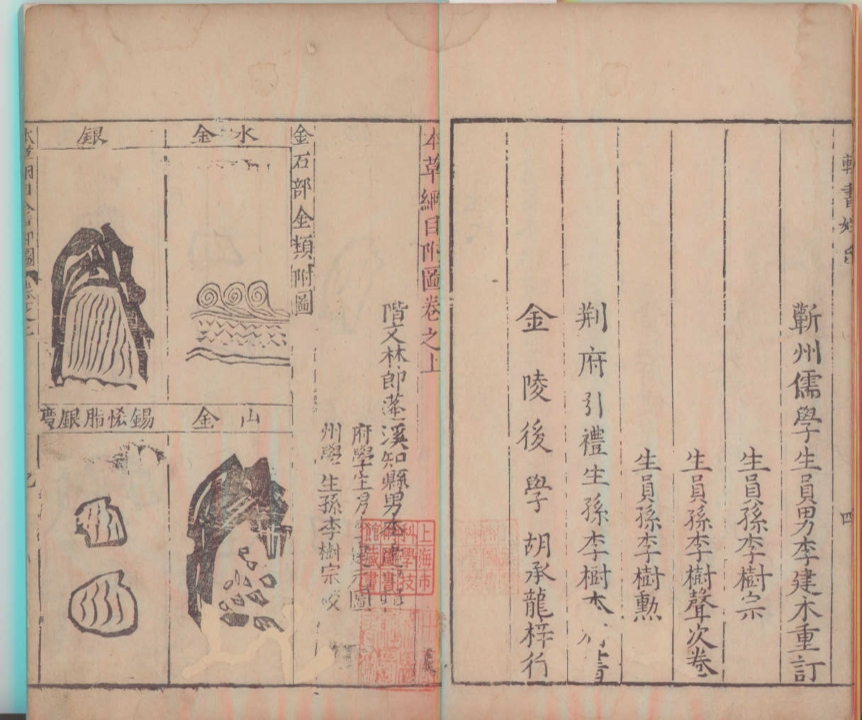 輯書姓氏
四
蘄州儒學生員男李建木重訂
生員孫李樹宗
生員孫李樹聲次卷
生員孫李樹勲
荆府引禮生孫李樹本
金陵後學胡承龍梓行
本草綱目附圖卷之上
階文林郎蓬溪知縣男李建
府學生男
州學生孫李樹宗校
金石部金類附圖
水金
山金
銀
錫悋脂銀礦
上海市
科學技